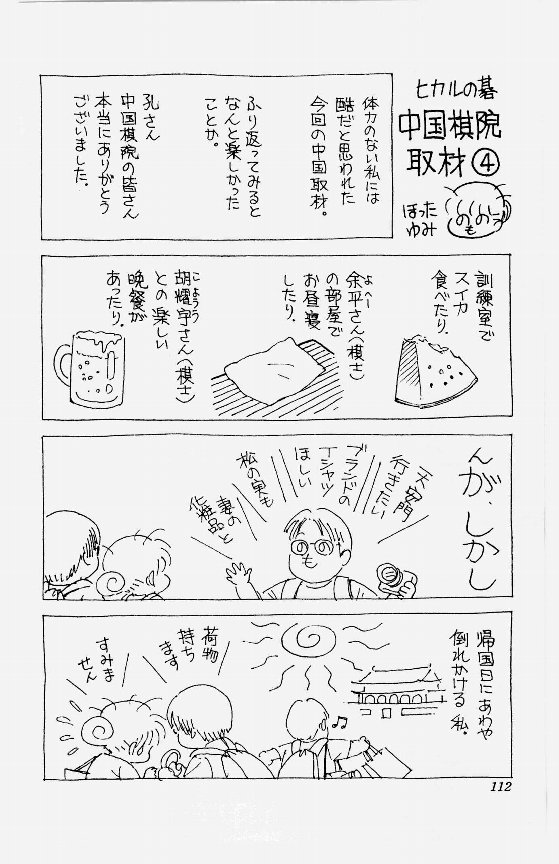 ヒカルの碁
中国棋院
取材④
ほった
ゆみ
体力のない私には
酷だと思われた
今回の中国取材。
ふり返ってみると
なんと楽しかった
ことか。
孔さん
中国棋院の皆さん
本当にありがとう
ございました。
訓練室で
スイカ
食べたり、
余平さん(棋士)
よへー
の部屋で
お昼寝
したり、
胡耀宇さん(棋士)
こようう
との楽しい
晩餐が
あったり、
んが、しかし
天安門
行きたい
ブランドの
Tシャツ
ほしい
松の実も
妻の
化粧品と
帰国日にあわや
倒れかける私。
荷物
持ち
ます
すみま
せん
112